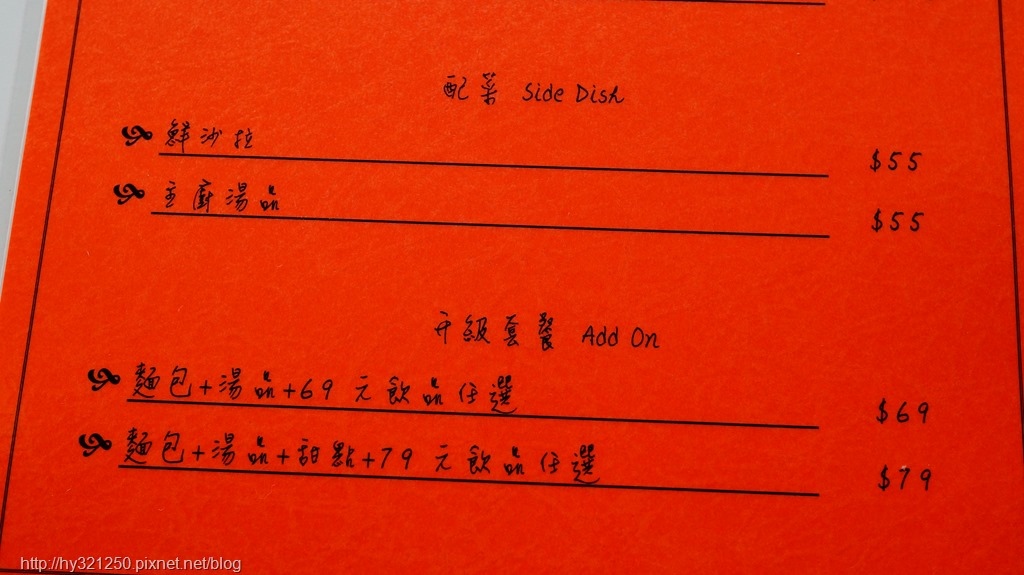 配菜 Side Dish
鮮沙拉 $55
主廚湯品 $55
升級套餐 Add On
麵包+湯品+69 元飲品任選 $69
麵包+湯品+甜點+79 元飲品任選 $79
http://hy321250.pixnet.net/blog